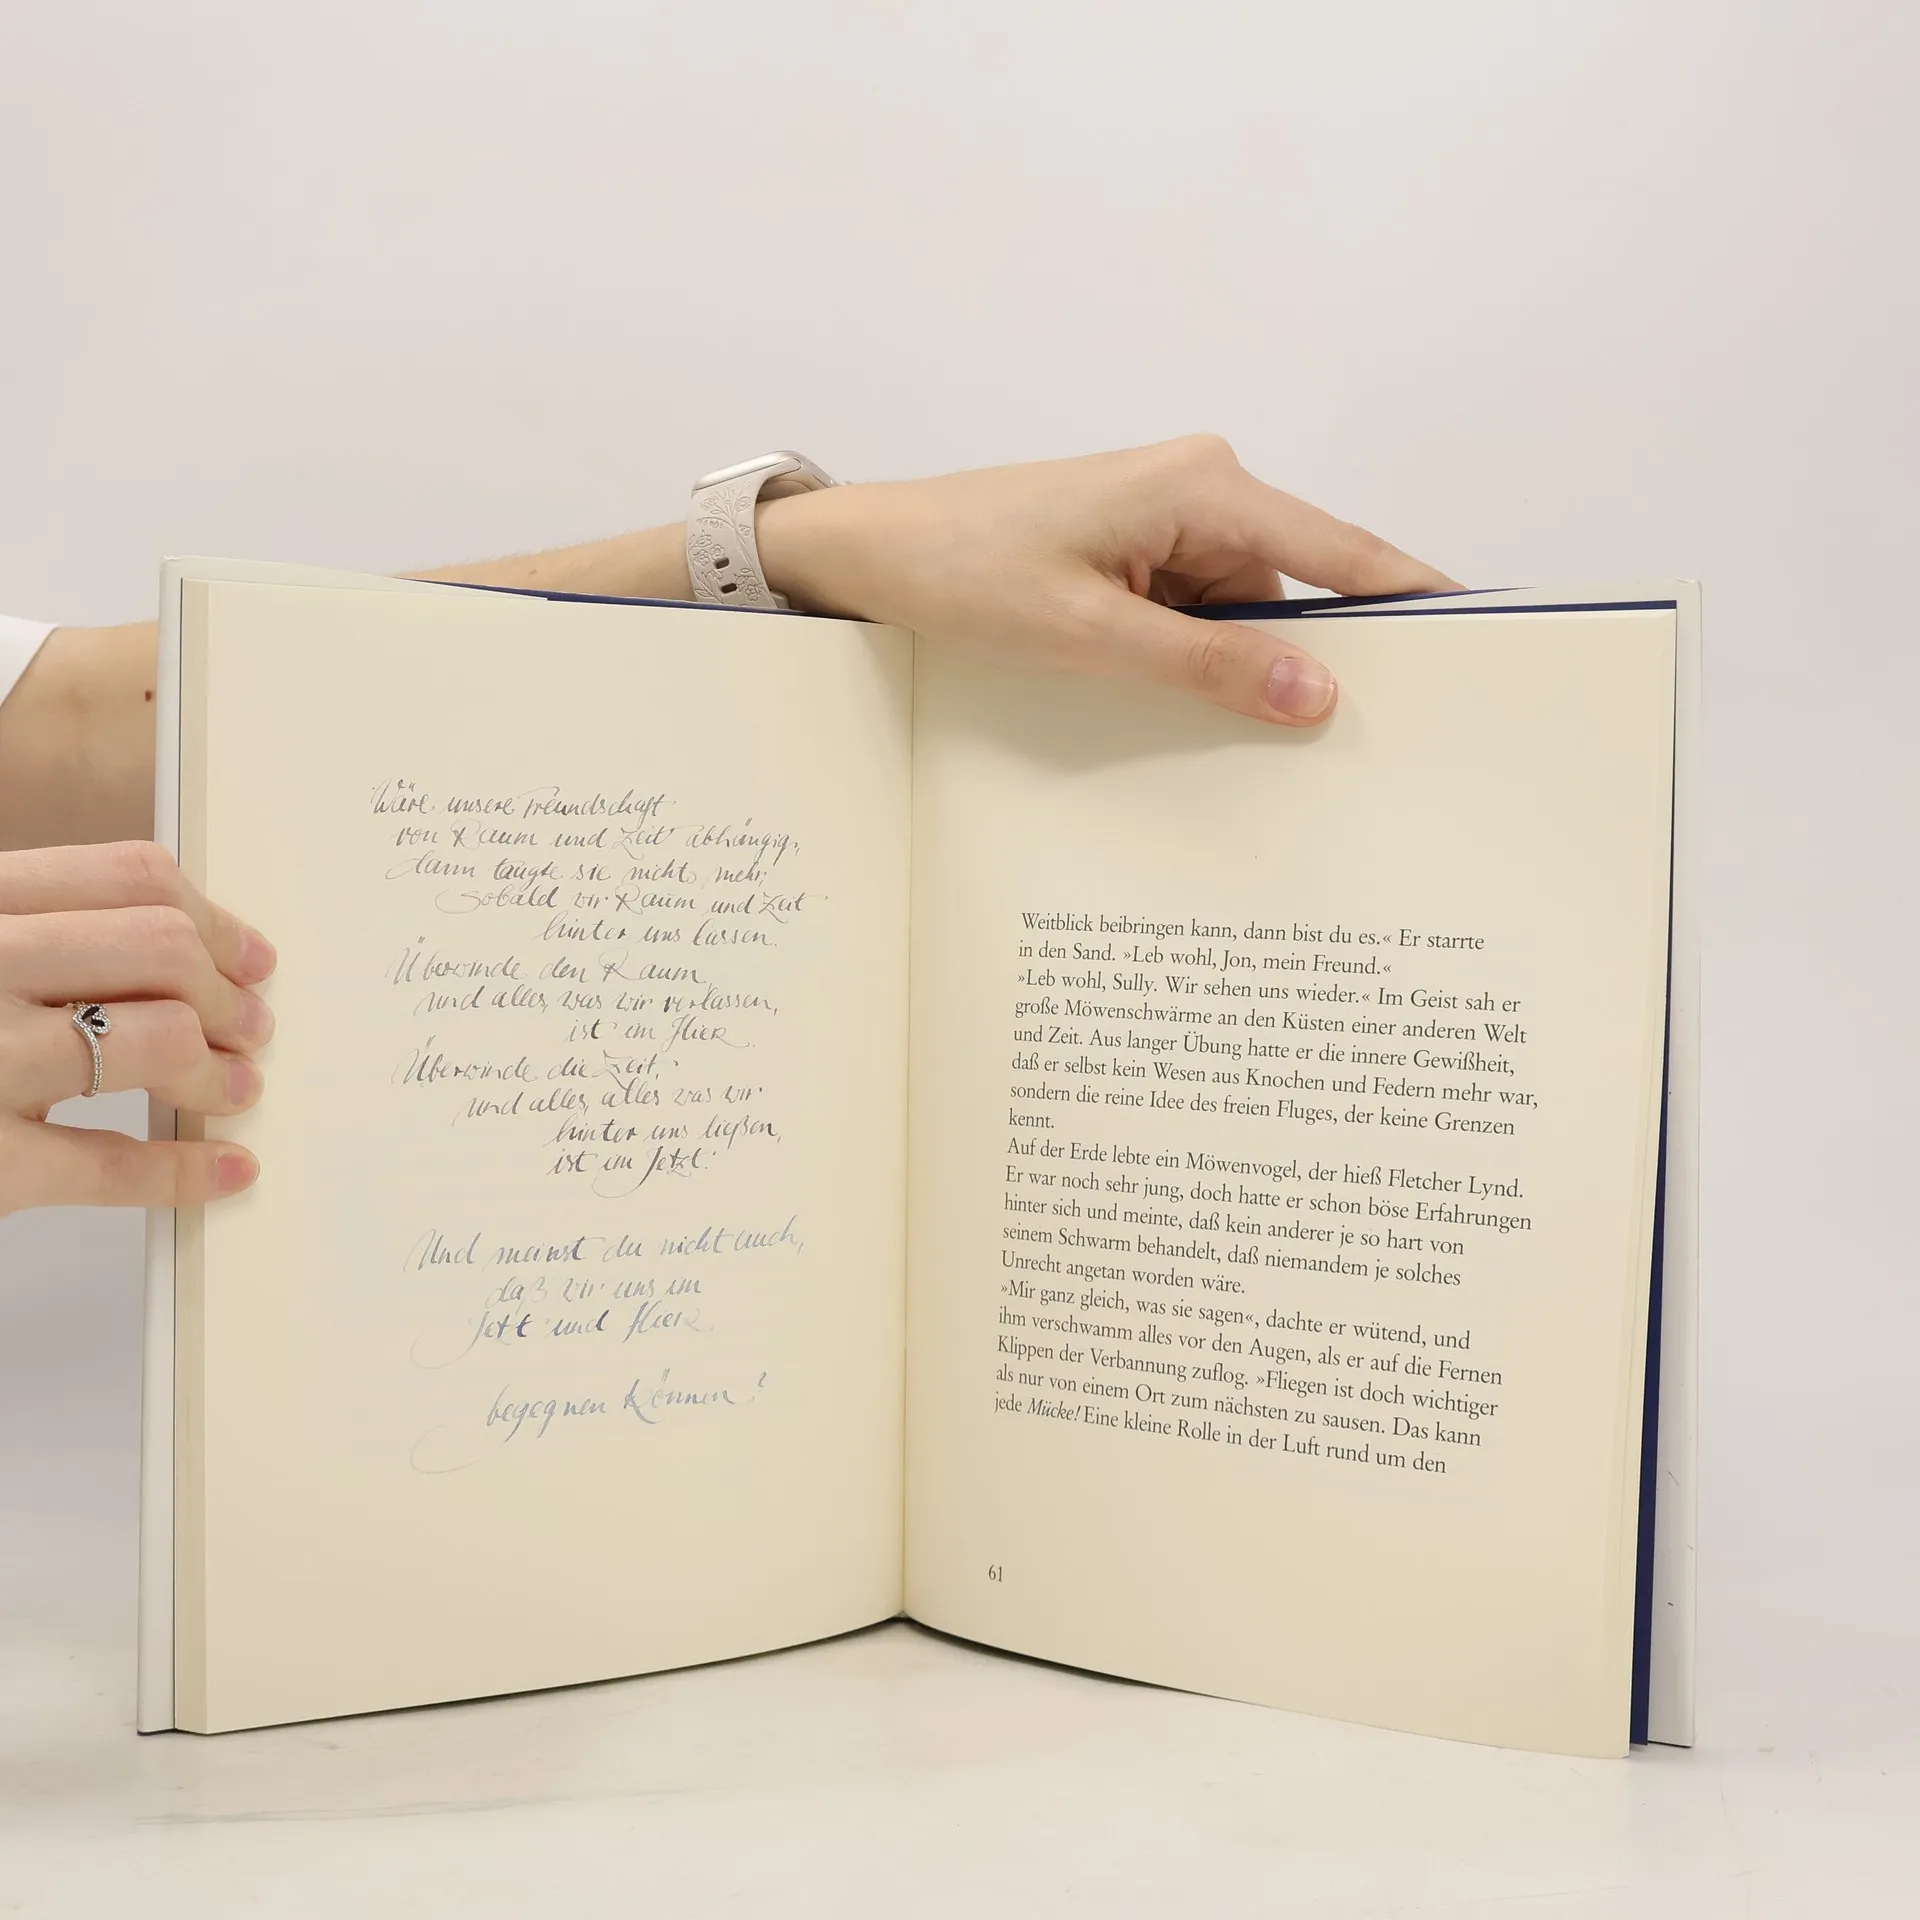 Wäre unsere Freundschaft
von Raum und Zeit abhängig,
dann taugte sie nichts mehr,
sobald wir Raum und Zeit
hinter uns lassen.
Überwinde den Raum,
und alles, was wir verlassen,
ist im Hier.
Überwinde die Zeit,
und alles, alles was wir
hinter uns ließen,
ist im Jetzt.
Und meinst du nicht auch,
daß wir uns im
Jetzt und Hier
begegnen können?
Weitblick beibringen kann, dann bist du es.« Er starrte
in den Sand. »Leb wohl, Jon, mein Freund.«
»Leb wohl, Sully. Wir sehen uns wieder.« Im Geist sah er
große Möwenschwärme an den Küsten einer anderen Welt
und Zeit. Aus langer Übung hatte er die innere Gewißheit,
daß er selbst kein Wesen aus Knochen und Federn mehr war,
sondern die reine Idee des freien Fluges, der keine Grenzen
kennt.
Auf der Erde lebte ein Möwenvogel, der hieß Fletcher Lynd.
Er war noch sehr jung, doch hatte er schon böse Erfahrungen
hinter sich und meinte, daß kein anderer je so hart von
seinem Schwarm behandelt, daß niemandem je solches
Unrecht angetan worden wäre.
»Mir ganz gleich, was sie sagen«, dachte er wütend, und
ihm verschwamm alles vor den Augen, als er auf die Fernen
Klippen der Verbannung zuflog. »Fliegen ist doch wichtiger
als nur von einem Ort zum nächsten zu sausen. Das kann
jede Mücke! Eine kleine Rolle in der Luft rund um den
61